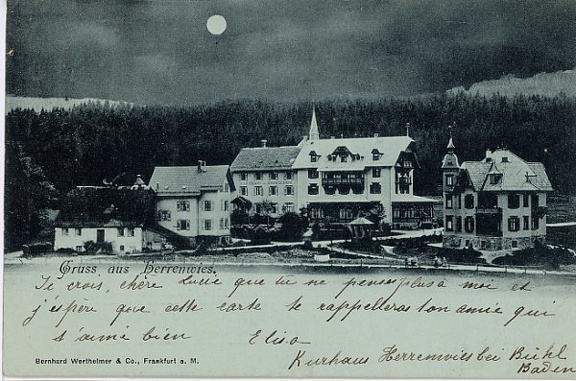 Gruss aus Herrenwies.
Je crois, chère Lucie que tu ne penses plus a moi et
j'espère que cette carte te rappelleras ton amie qui
s'aimé bien Elisa
Kurhaus Herrenwies bei Bühl
Baden
Bernhard Wertheimer & Co., Frankfurt a. M.